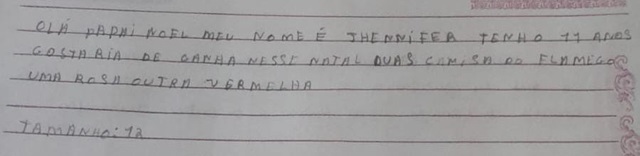 OLÁ PAPAI NOEL MEU NOME É JHENNIFER TENHO 11 ANOS
GOSTARIA DE GANHA NESSE NATAL DUAS CAMISA DO FLAMEGO
UMA ROSA OUTRA VERMELHA
TAMANHO: 12